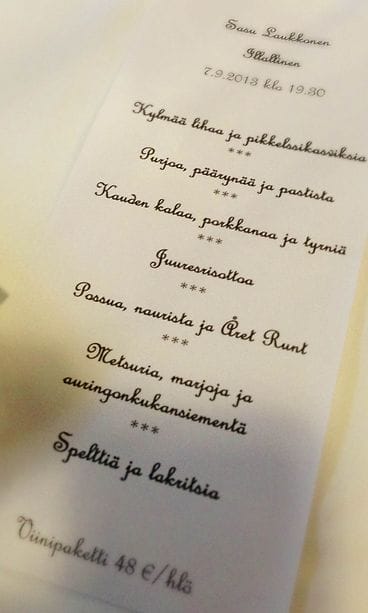 Sasu Laukkonen
Illallinen
7.9.2013 klo 19.30
Kylmää lihaa ja pikkelssikasviksia
***
Purjoa, päärynää ja pastista
***
Kauden kalaa, porkkanaa ja tyrniä
***
Juuresrisottoa
***
Possua, naurista ja Året Runt
***
Metsuria, marjoja ja
auringonkukansiementä
***
Spelttiä ja lakritsia
Viinipaketti 48 €/hlö